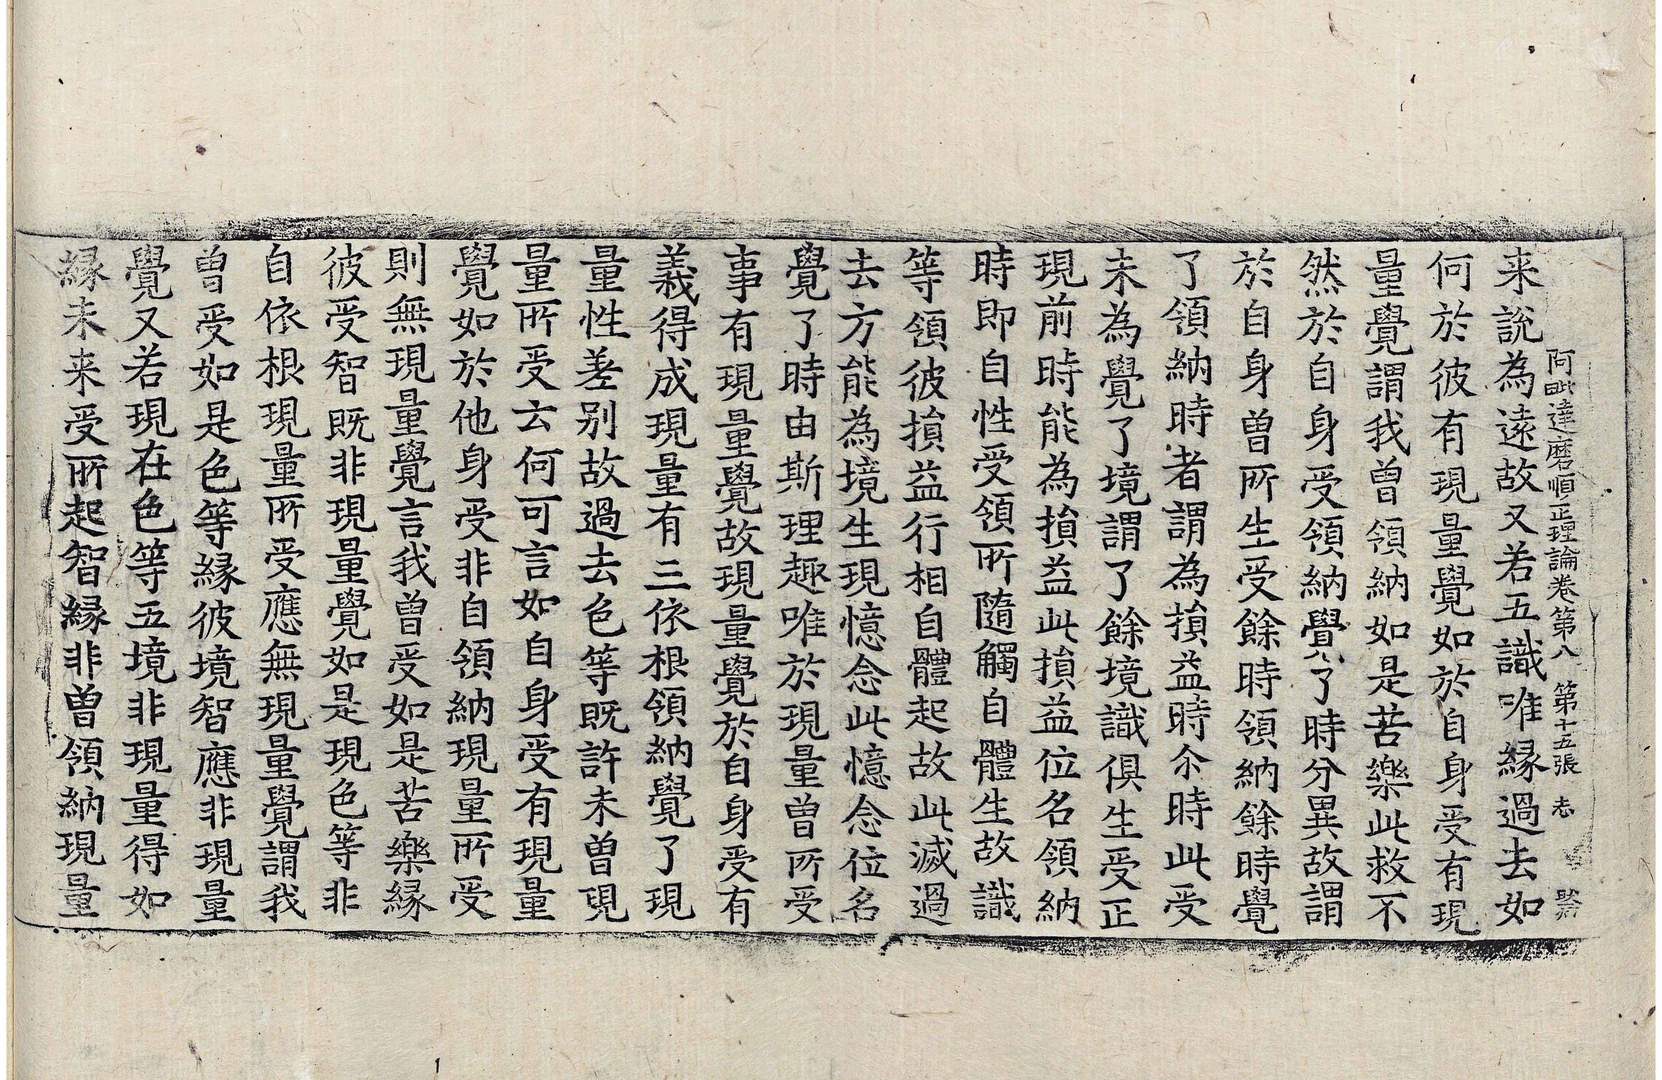 阿毗達磨順正理論卷第八 第十五張 志
来說為遠故又若五識唯緣過去如
何於彼有現量覺如於自身受有現
量覺謂我曾領納如是苦樂此救不
然於自身受領納覺了時分異故謂
於自身曾所生受餘時領納餘時覺
了領納時者謂為損益時尒時此受
未為覺了境謂了餘境識俱生受正
現前時能為損益此損益位名領納
時即自性受領所隨觸自體生故識
等領彼損益行相自體起故此滅過
去方能為境生現憶念此憶念位名
覺了時由斯理趣唯於現量曾所受
事有現量覺故現量覺於自身受有
義得成現量有三依根領納覺了現
量性差别故過去色等既許未曾現
量所受云何可言如自身受有現量
覺如於他身受非自領納現量所受
則無現量覺言我曾受如是苦樂緣
彼受智既非現量覺如是現色等非
自依根現量所受應無現量覺謂我
曾受如是色等緣彼境智應非現量
覺又若現在色等五境非現量得如
緣未来受所起智緣非曾領納現量